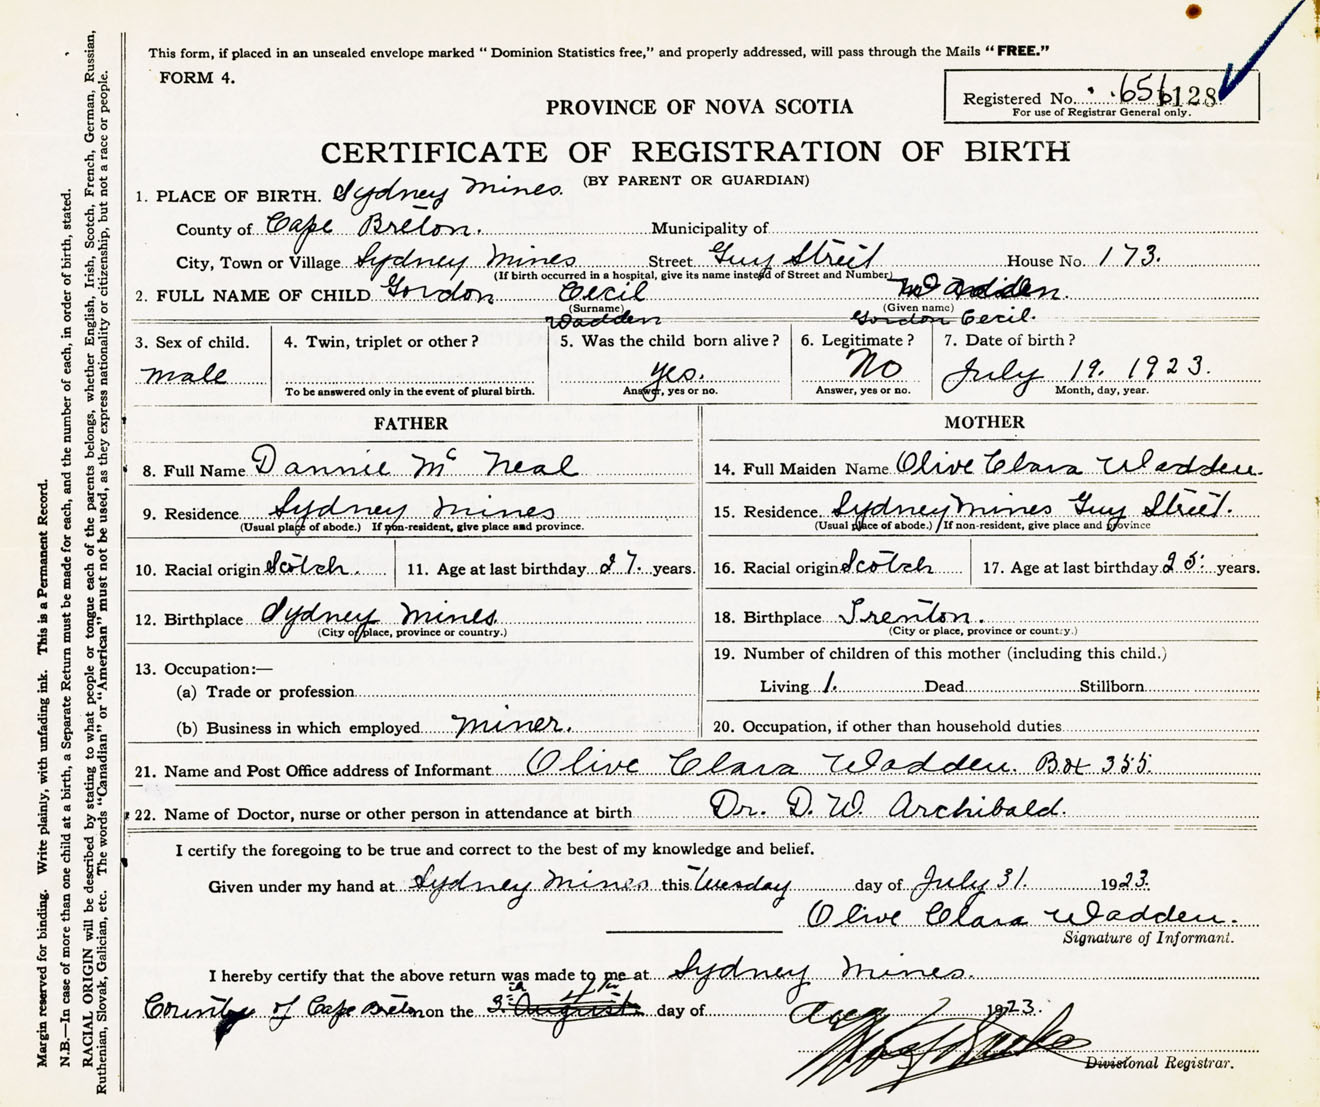 This form, if placed in an unsealed envelope marked " Dominion Statistics free," and properly addressed, will pass through the Mails "FREE."
FORM 4.
Registered No. 656128
For use of Registrar General only.
PROVINCE OF NOVA SCOTIA
CERTIFICATE OF REGISTRATION OF BIRTH
(BY PARENT OR GUARDIAN)
1. PLACE OF BIRTH. Sydney Mines.
County of Cape Breton. Municipality of
City, Town or Village Sydney Mines Street Guy Street House No. 173.
(If birth occurred in a hospital, give its name instead of Street and Number)
2. FULL NAME OF CHILD Gordon Cecil
(Surname) (Given name)
Wadden Gordon Cecil.
3. Sex of child. 4. Twin, triplet or other? 5. Was the child born alive? 6. Legitimate? 7. Date of birth?
male yes. No July 19. 1923.
To be answered only in the event of plural birth. Answer, yes or no. Answer, yes or no. Month, day, year.
FATHER
8. Full Name Dannie Mc Neal
9. Residence Sydney Mines
(Usual place of abode.) If non-resident, give place and province.
10. Racial origin Scotch. 11. Age at last birthday 27. years.
12. Birthplace Sydney Mines.
(City or place, province or country.)
13. Occupation:—
(a) Trade or profession
(b) Business in which employed miner.
MOTHER
14. Full Maiden Name Olive Clara Wadden.
15. Residence. Sydney Mines Guy Street.
(Usual place of abode.) If non-resident, give place and province
16. Racial origin Scotch 17. Age at last birthday 25. years.
18. Birthplace Trenton.
(City or place, province or country.)
19. Number of children of this mother (including this child.)
Living 1. Dead Stillborn
20. Occupation, if other than household duties
21. Name and Post Office address of Informant Olive Clara Wadden. Box 355.
22. Name of Doctor, nurse or other person in attendance at birth Dr. D. W. Archibald.
I certify the foregoing to be true and correct to the best of my knowledge and belief.
Given under my hand at Sydney Mines this Tuesday day of July 31. 1923.
Olive Clara Wadden.
Signature of Informant.
I hereby certify that the above return was made to me at Sydney Mines.
County of Cape Breton on the August day of Aug 7 1923.
Divisional Registrar.
Margin reserved for binding. Write plainly, with unfading ink. This is a Permanent Record.
N.B.—In case of more than one child at a birth, a Separate Return must be made for each, and the number of each, in order of birth, stated.
RACIAL ORIGIN will be described by stating to what people or tongue each of the parents belongs, whether English, Irish, Scotch, French, German, Russian,
Ruthenian, Slovak, Galician, etc. The words "Canadian" or "American" must not be used, as they express nationality or citizenship, but not a race or people.